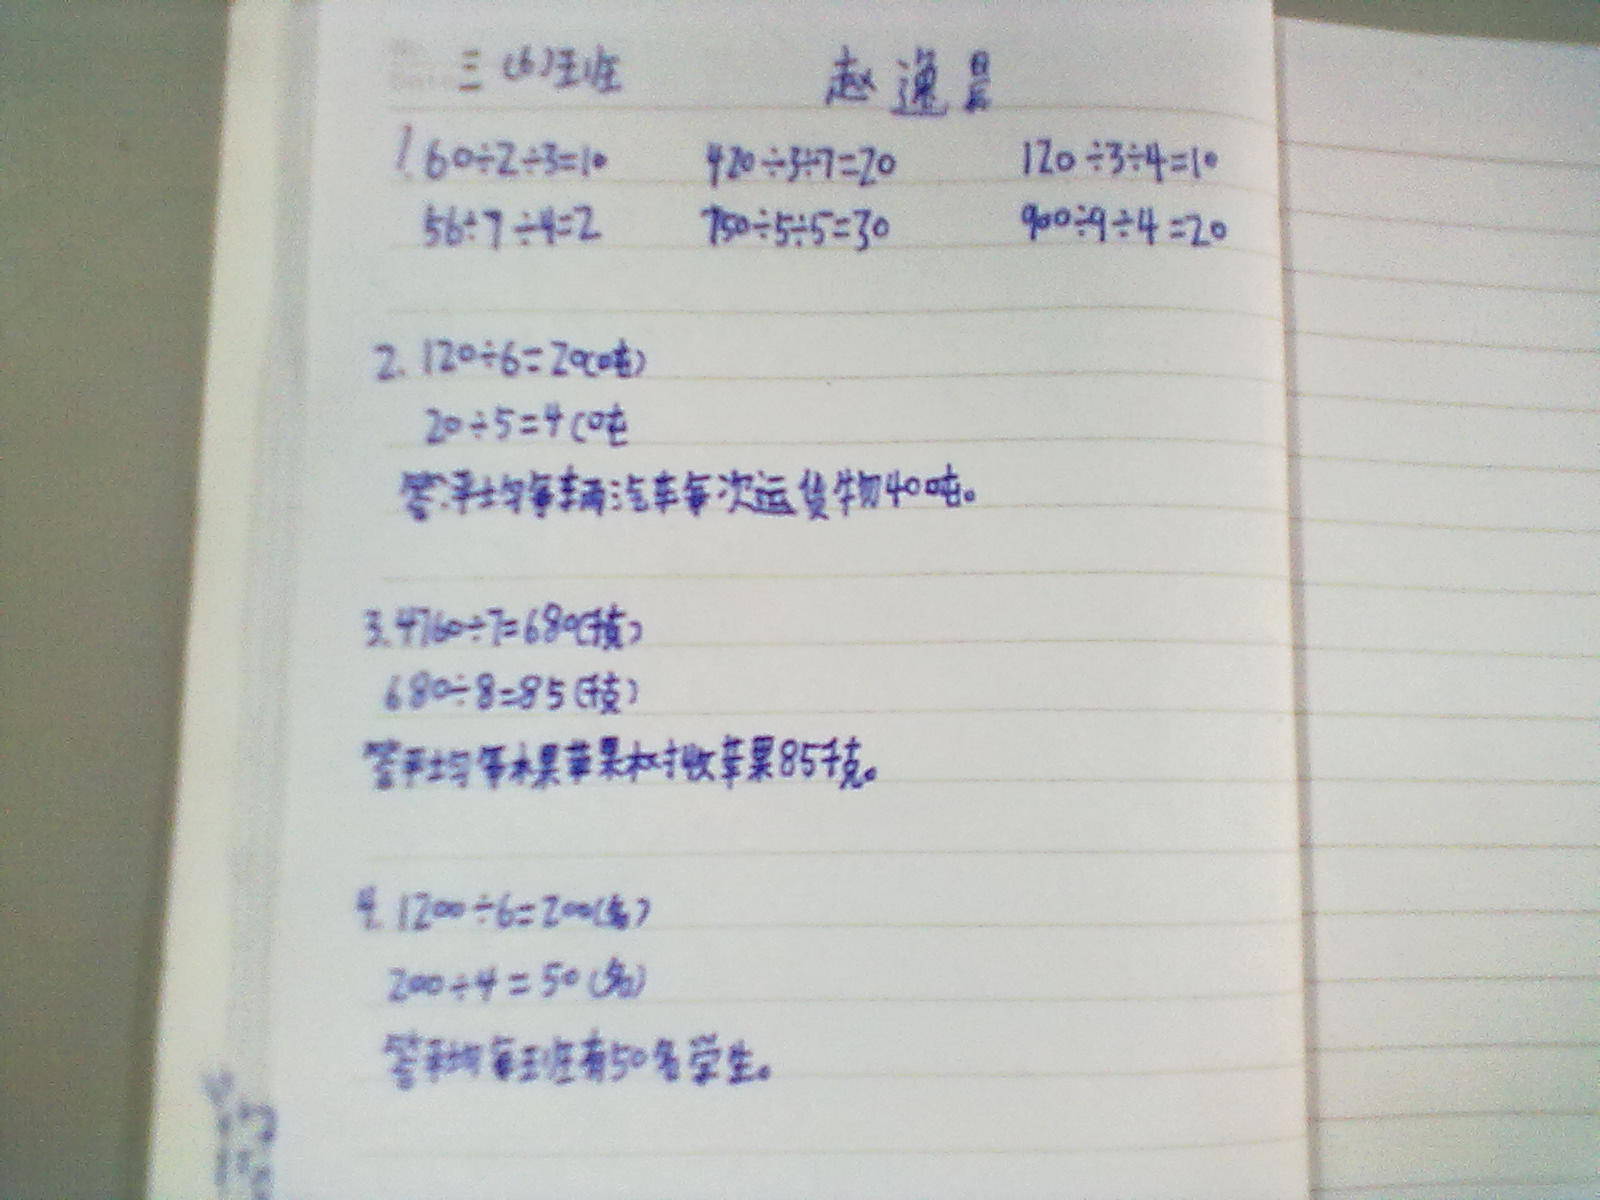 三(6)班 赵通晨
1. 60÷2÷3=10 420÷3÷7=20 120÷3÷4=10
56÷7÷4=2 750÷5÷5=30 900÷9÷4=20
2. 120÷6=20(吨)
20÷5=4(吨
答:平均每辆汽车每次运货物40吨。
3. 4760÷7=680(千克)
680÷8=85(千克)
答平均每木果苹果树收苹果85千克。
4. 1200÷6=200(名)
200÷4=50(名)
答平均每班有50名学生。